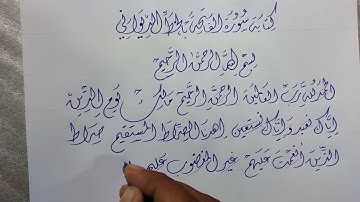 كتابة سورة الفاتحة بالخط الديواني
بسم الله الرحمن الرحيم
الحمد لله رب العالمين الرحمن الرحيم مالك يوم الدين
إياك نعبد وإياك نستعين اهدنا الصراط المستقيم صراط
الذين أنعمت عليهم غير المغضوب عليهم